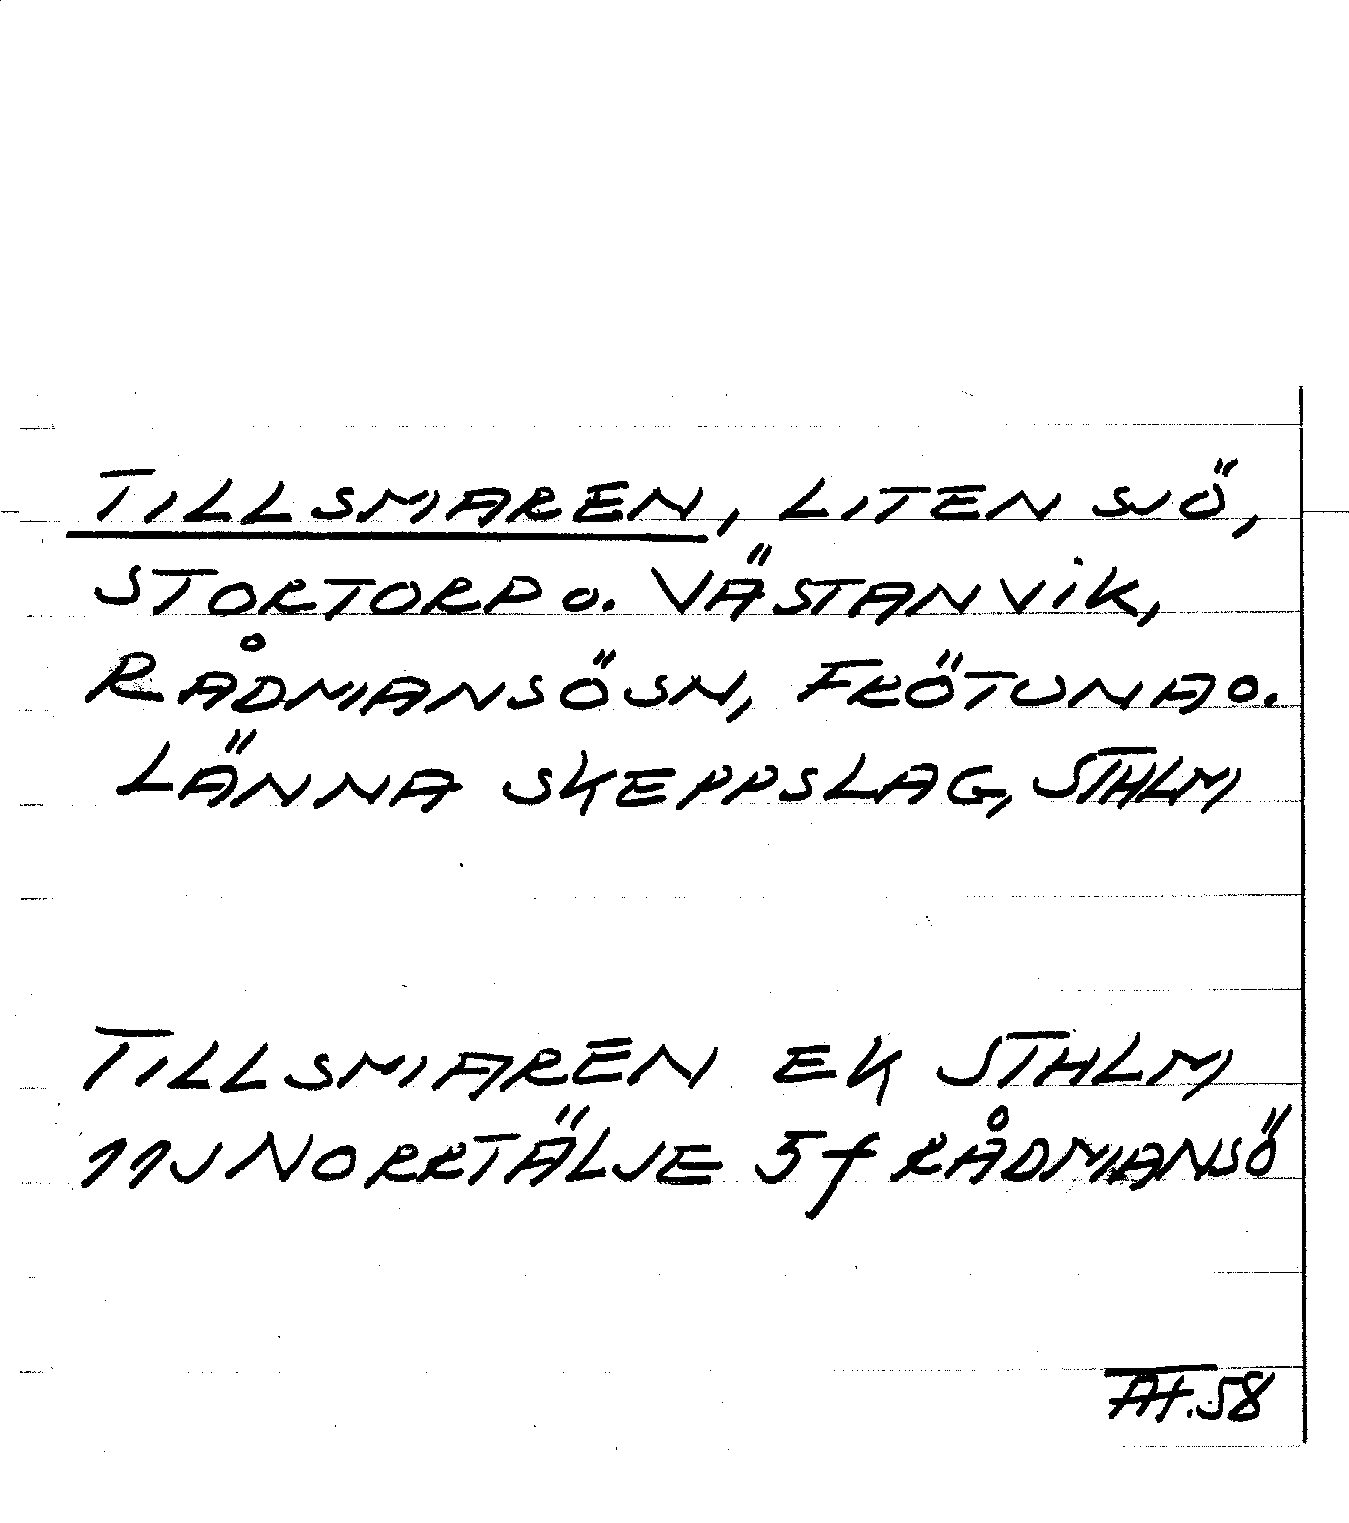 TILLSMAREN, LITEN SJÖ,
STORTORP o. VÄSTANVIK,
RÅDMANSÖSN, FRÖTUNA o.
LÄNNA SKEPPSLAG, STHLM
TILLSMAREN EK STHLM
11J NORRTÄLJE 5f RÅDMANSÖ
58